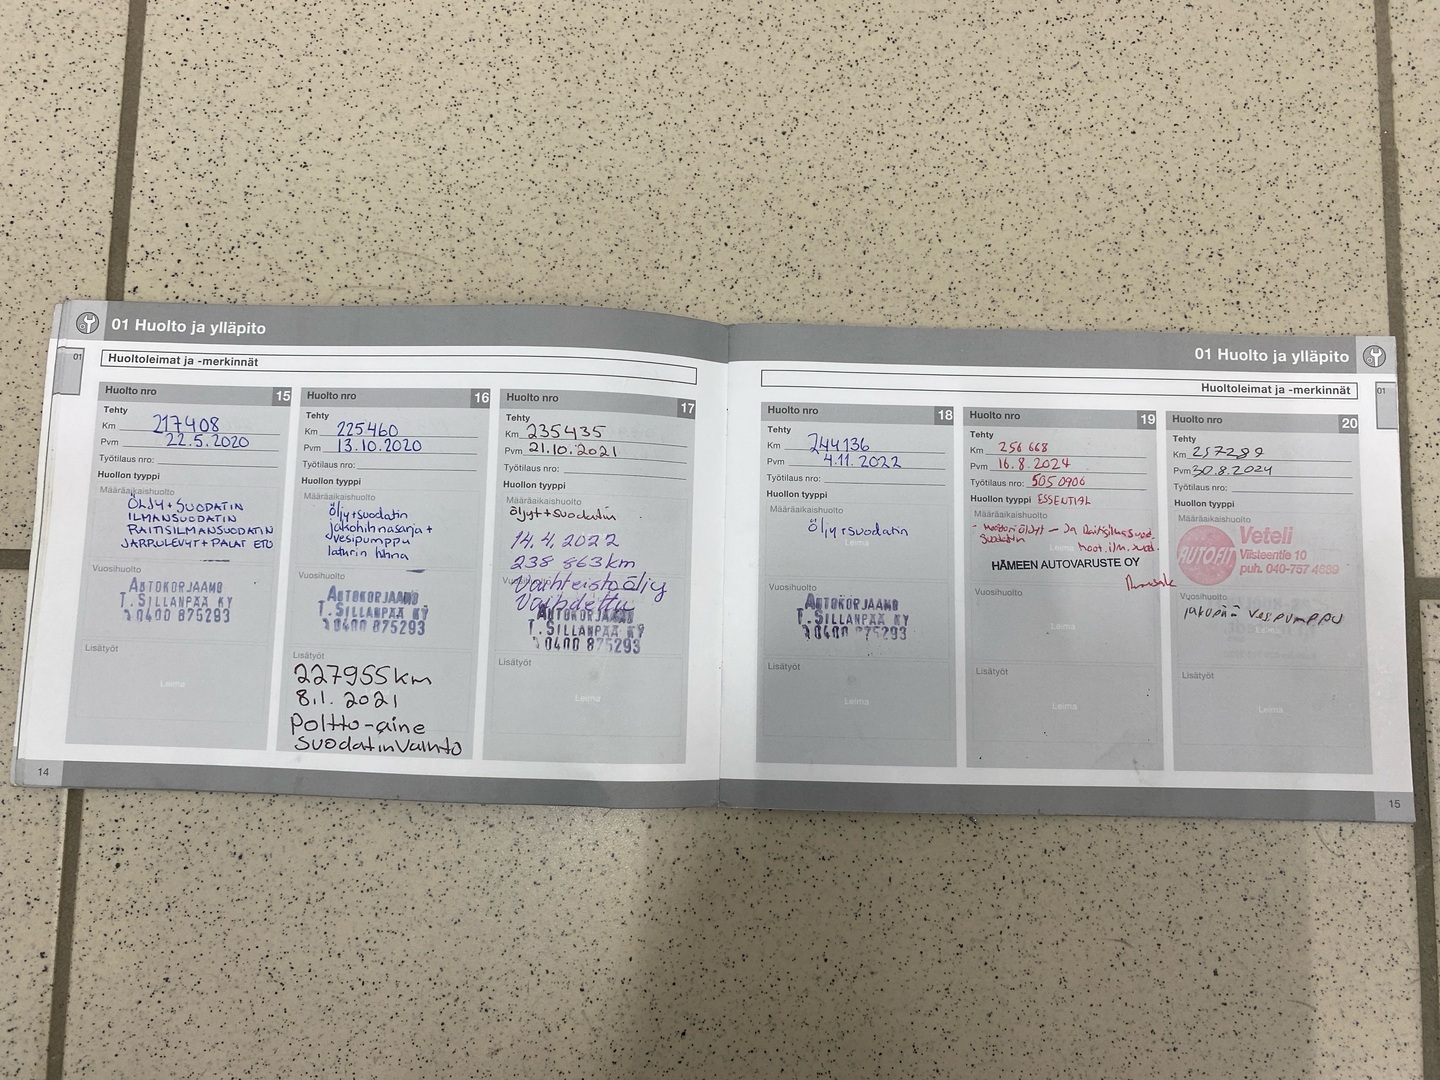 01 Huolto ja ylläpito
01
Huoltoleimat ja -merkinnät
Huolto nro 15
Tehty
Km 217408
Pvm 22.5.2020
Työtilaus nro:
Huollon tyyppi
Määräaikaishuolto
ÖLJY+SUODATIN
ILMANSUODATIN
RAITISILMANSUODATIN
JARRULEVYT+PALAT ETU
Vuosihuolto
AUTOKORJAAMO
T. SILLANPÄÄ KY
0400 875293
Lisätyöt
Leima
14
Huolto nro 16
Tehty
Km 225460
Pvm 13.10.2020
Työtilaus nro:
Huollon tyyppi
Määräaikaishuolto
öljy+suodatin
jakohihnasarja +
vesipumppu
laturin hihna
Vuosihuolto
AUTOKORJAAMO
T. SILLANPÄÄ KY
0400 875293
Lisätyöt
227955km
8.1. 2021
Poltto-aine
Suodatinvaihto
Huolto nro 17
Tehty
Km 235435
Pvm 21.10.2021
Työtilaus nro:
Huollon tyyppi
Määräaikaishuolto
öljyt+suodatin
14.4.2022
238 863km
Vaihteistoöljy
Vuosihuolto
Vaihdettu
AUTOKORJAAMO
T. SILLANPÄÄ KY
0400 875293
Lisätyöt
Leima
01 Huolto ja ylläpito
01
Huoltoleimat ja -merkinnät
Huolto nro 18
Tehty
Km 244136
Pvm 4.11.2022
Työtilaus nro:
Huollon tyyppi
Määräaikaishuolto
Öljy+suodatin
Leima
Vuosihuolto
AUTOKORJAAMO
T. SILLANPÄÄ KY
0400 875293
Lisätyöt
Leima
Huolto nro 19
Tehty
Km 256 668
Pvm 16.8.2024
Työtilaus nro: 5050906
Huollon tyyppi ESSENTIAL
Määräaikaishuolto
- moottoriöljyt - Ja
suodatin
Leima
moot.ilm.suod.
HÄMEEN AUTOVARUSTE OY
Vuosihuolto
Leima
Lisätyöt
Leima
Huolto nro 20
Tehty
Km 257289
Pvm 30.8.2024
Työtilaus nro:
Huollon tyyppi
Määräaikaishuolto
AUTOFIT
Veteli
Viisteentie 10
puh. 040-757 4689
Vuosihuolto
jakopää vesipumppu
Leima
Lisätyöt
Leima
15